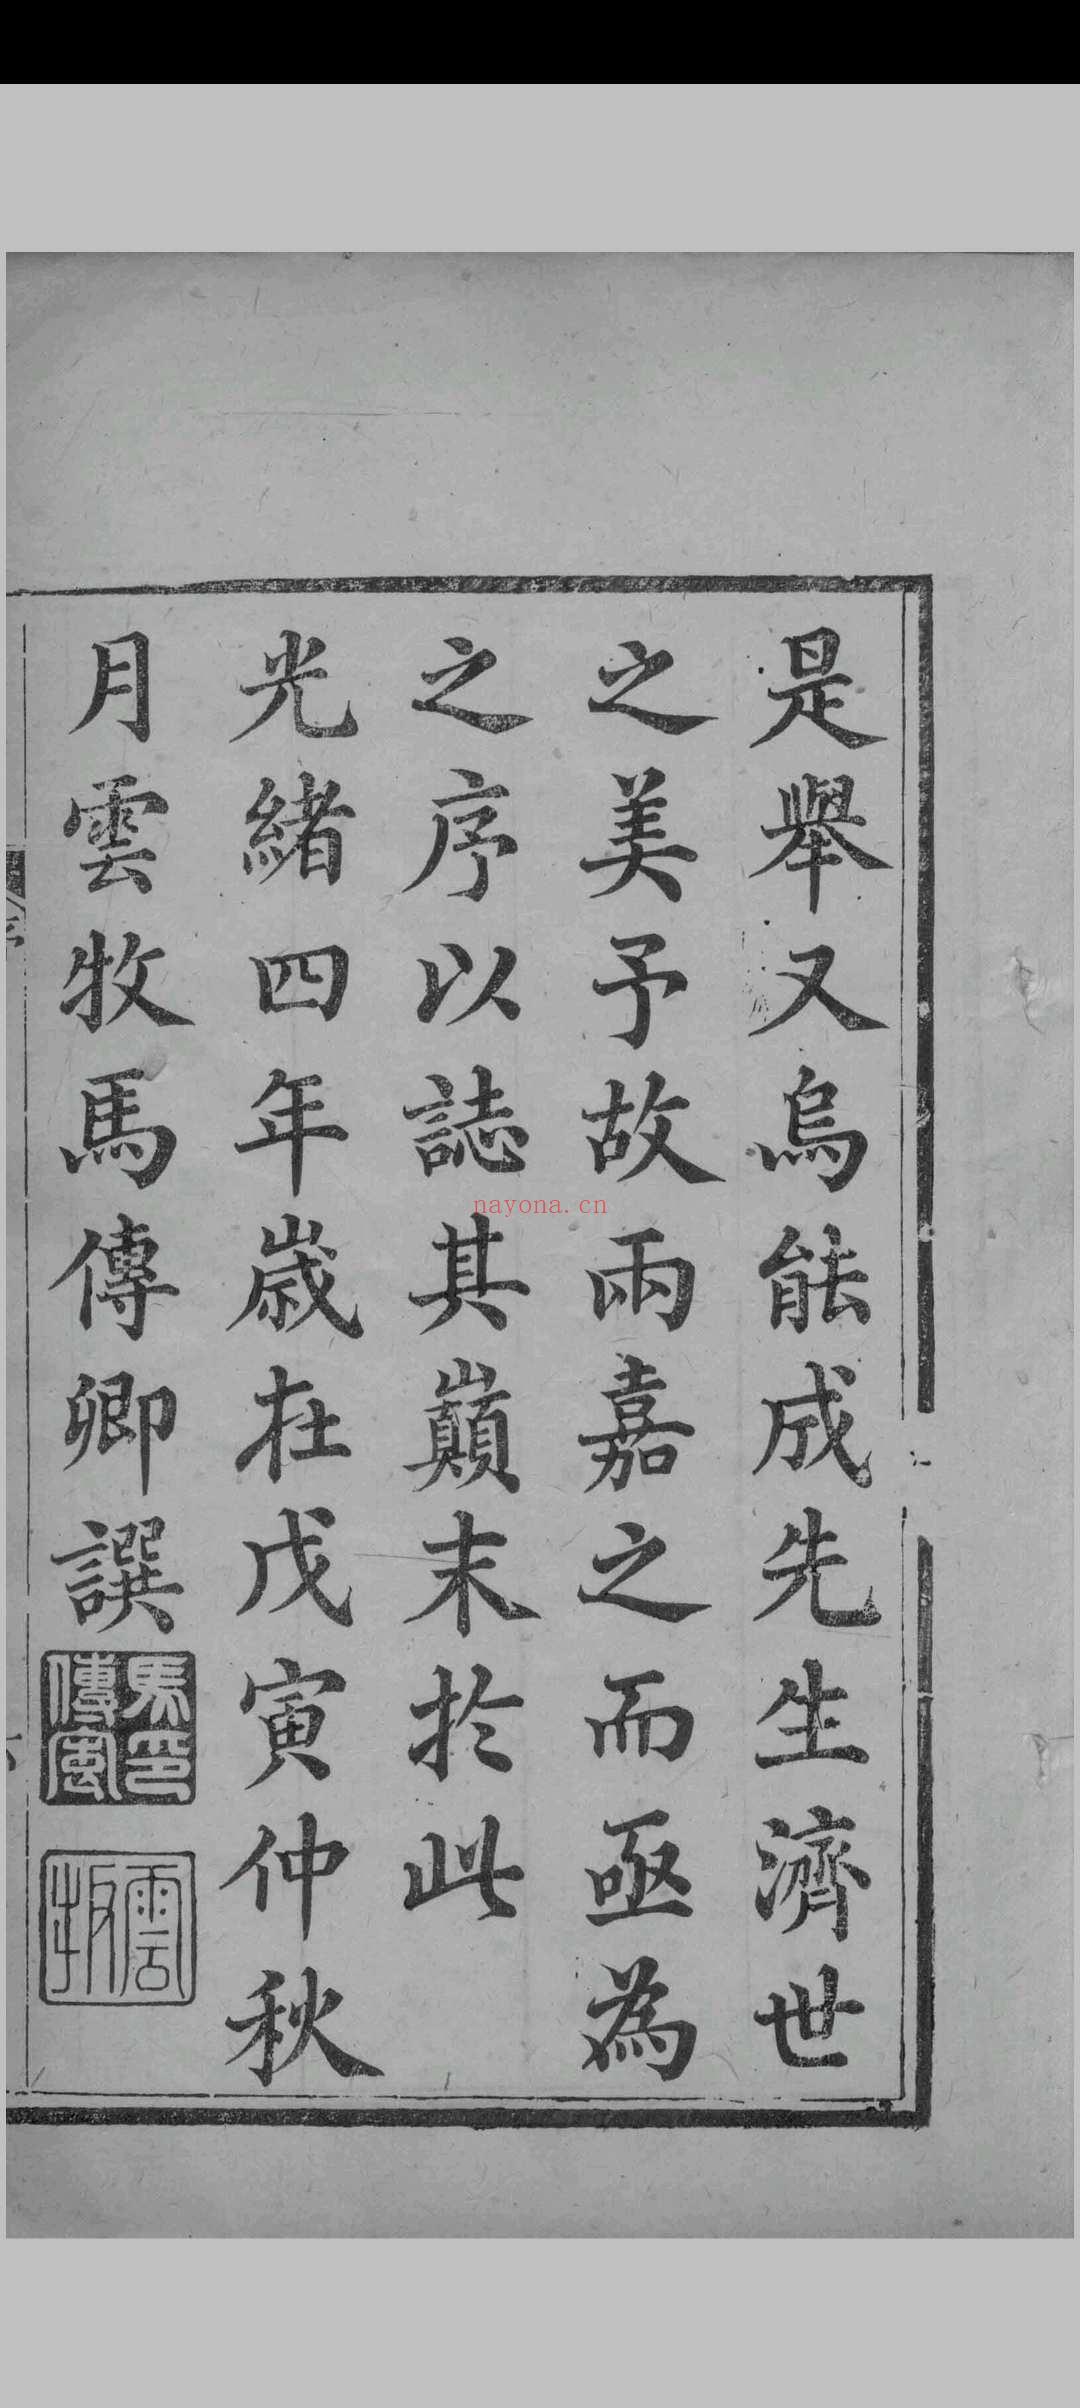 是舉又烏能成先生濟世
之美予故兩嘉之而亟為
之序以誌其巔末於此
光緒四年歲在戊寅仲秋
月雲牧馬傳卿譔
馬印傳卿
雲牧
nayona.cn